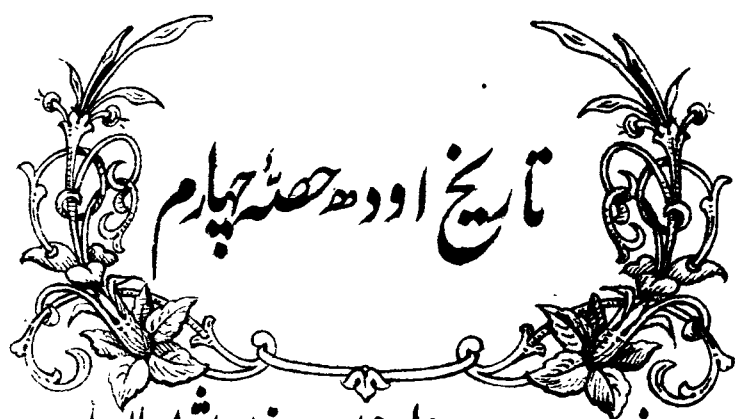 تاریخ اودھ حصۂ چہارم